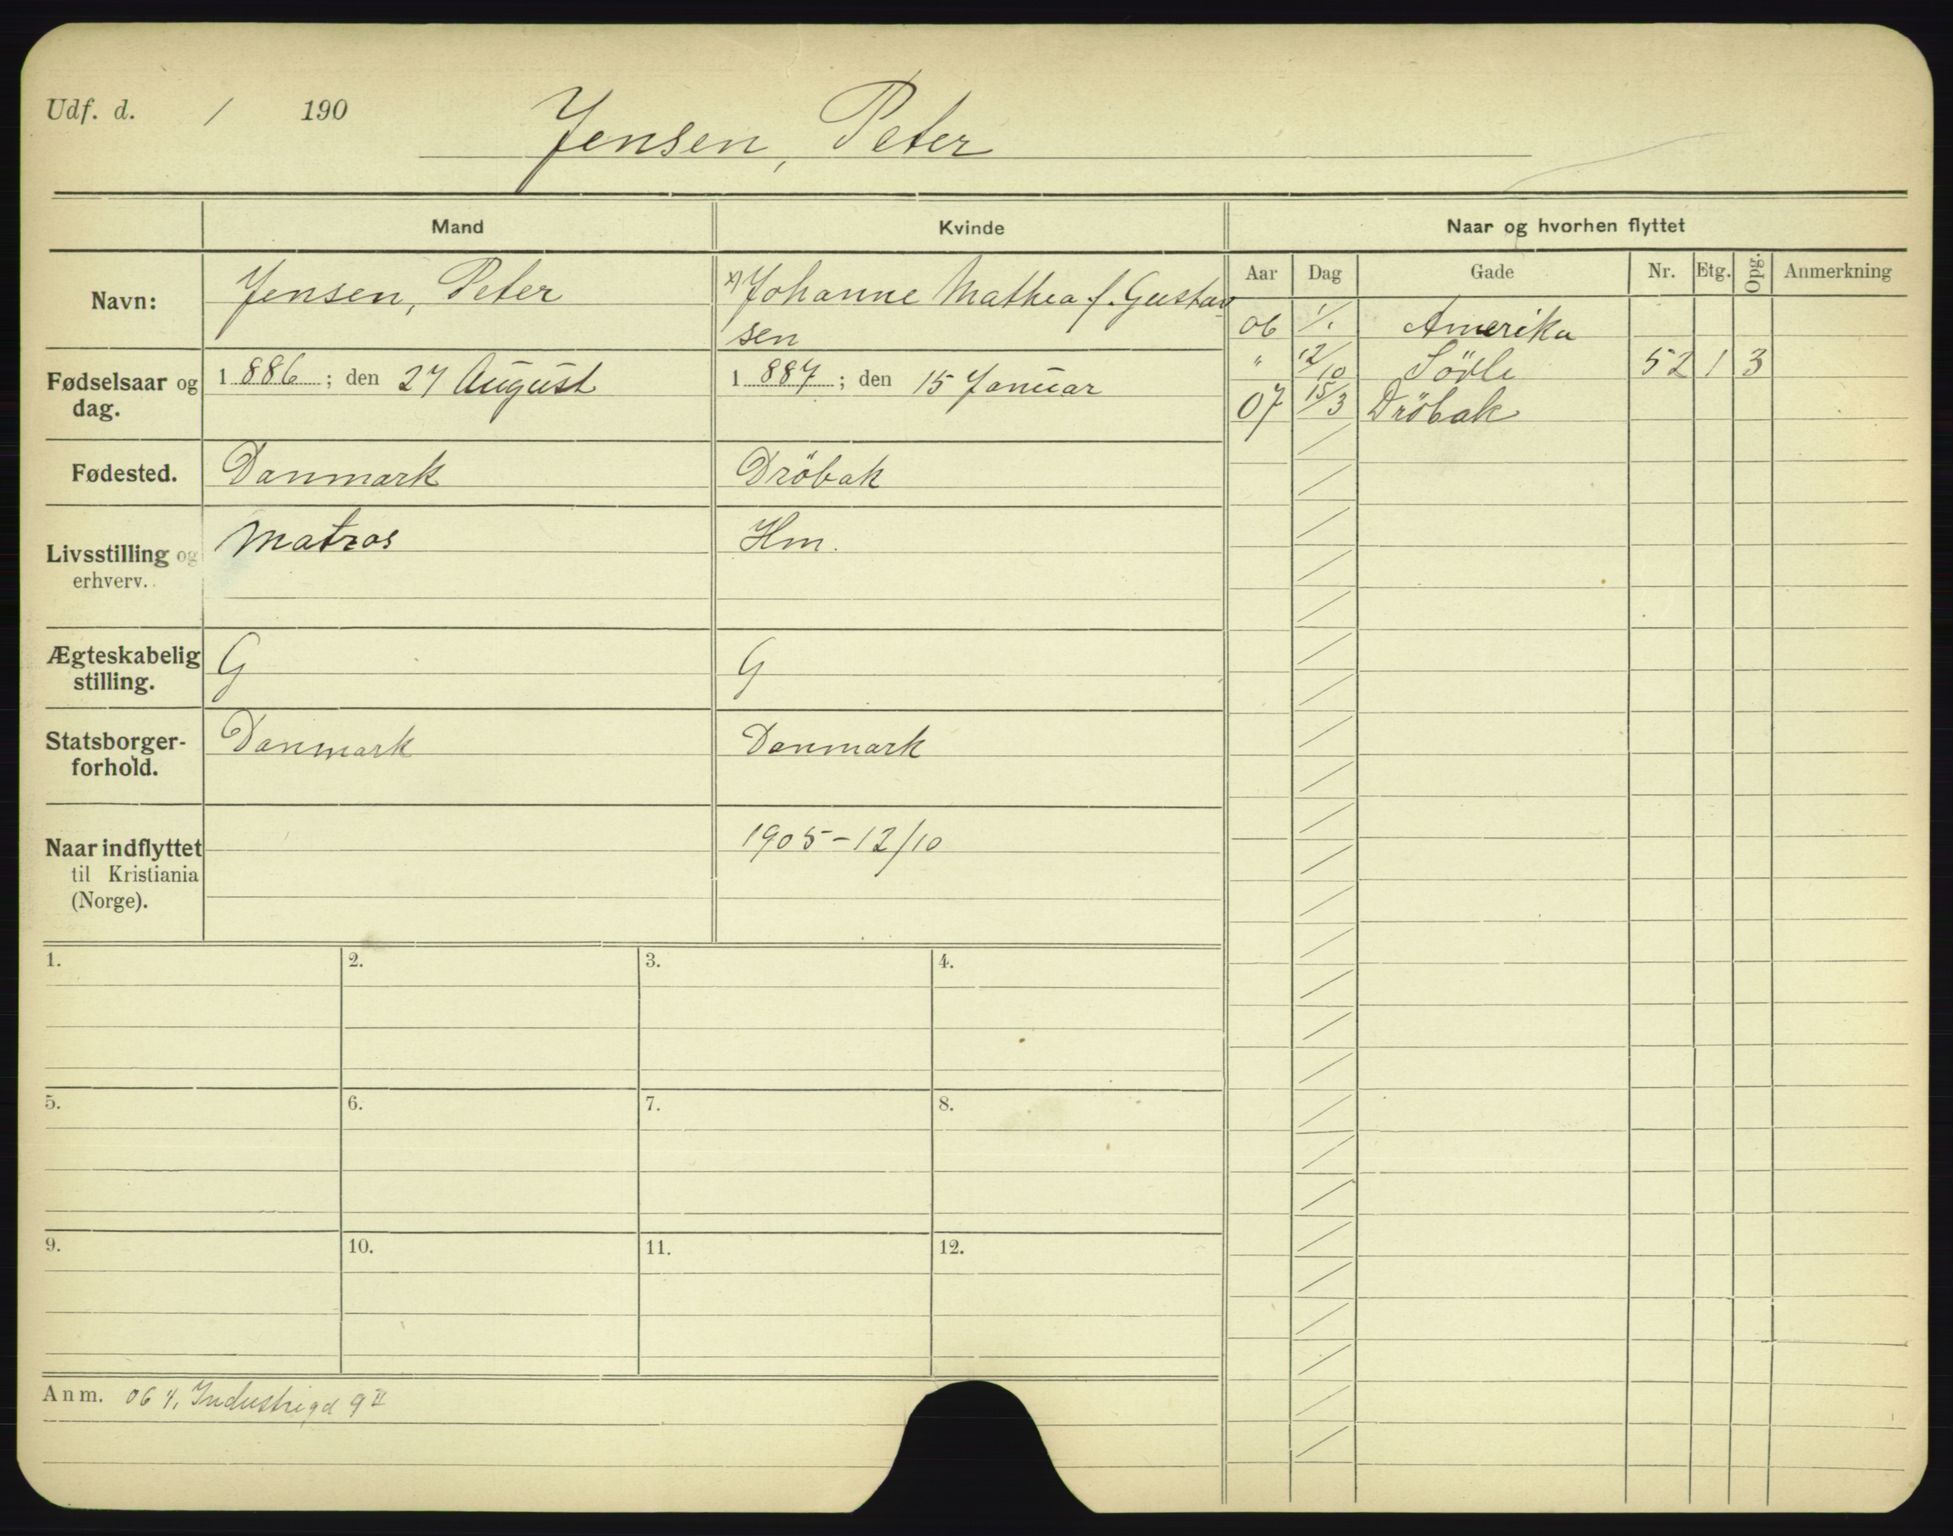 Udf. d. / 190
Jensen, Peter
Mand Kvinde Naar og hvorhen flyttet
Aar Dag Gade Nr. Etg. Opg. Anmerkning
Navn: Jensen, Peter x) Johanne Mathea f. Gustav
sen
06 1/1 Amerika
" 12/10 Sövle 52 1 3
07 15/3 Dröbak
Fødselsaar og 1 886 ; den 27 August 1 887 ; den 15 Januar
dag.
Fødested. Danmark Dröbak
Livsstilling og Matros Hm.
erhverv.
Ægteskabelig G G
stilling.
Statsborger- Danmark Danmark
forhold.
Naar indflyttet 1905-12/10
til Kristiania
(Norge).
1. 2. 3. 4.
5. 6. 7. 8.
9. 10. 11. 12.
Anm. 06 1/1 Industrigd 9 II